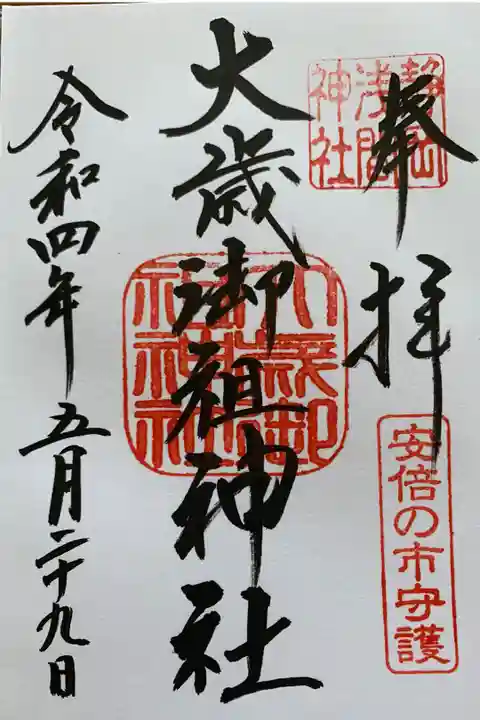 奉拝
静岡
浅間
神社
安倍の市守護
大歳御祖神社
大歳御
祖神社
令和四年五月二十九日